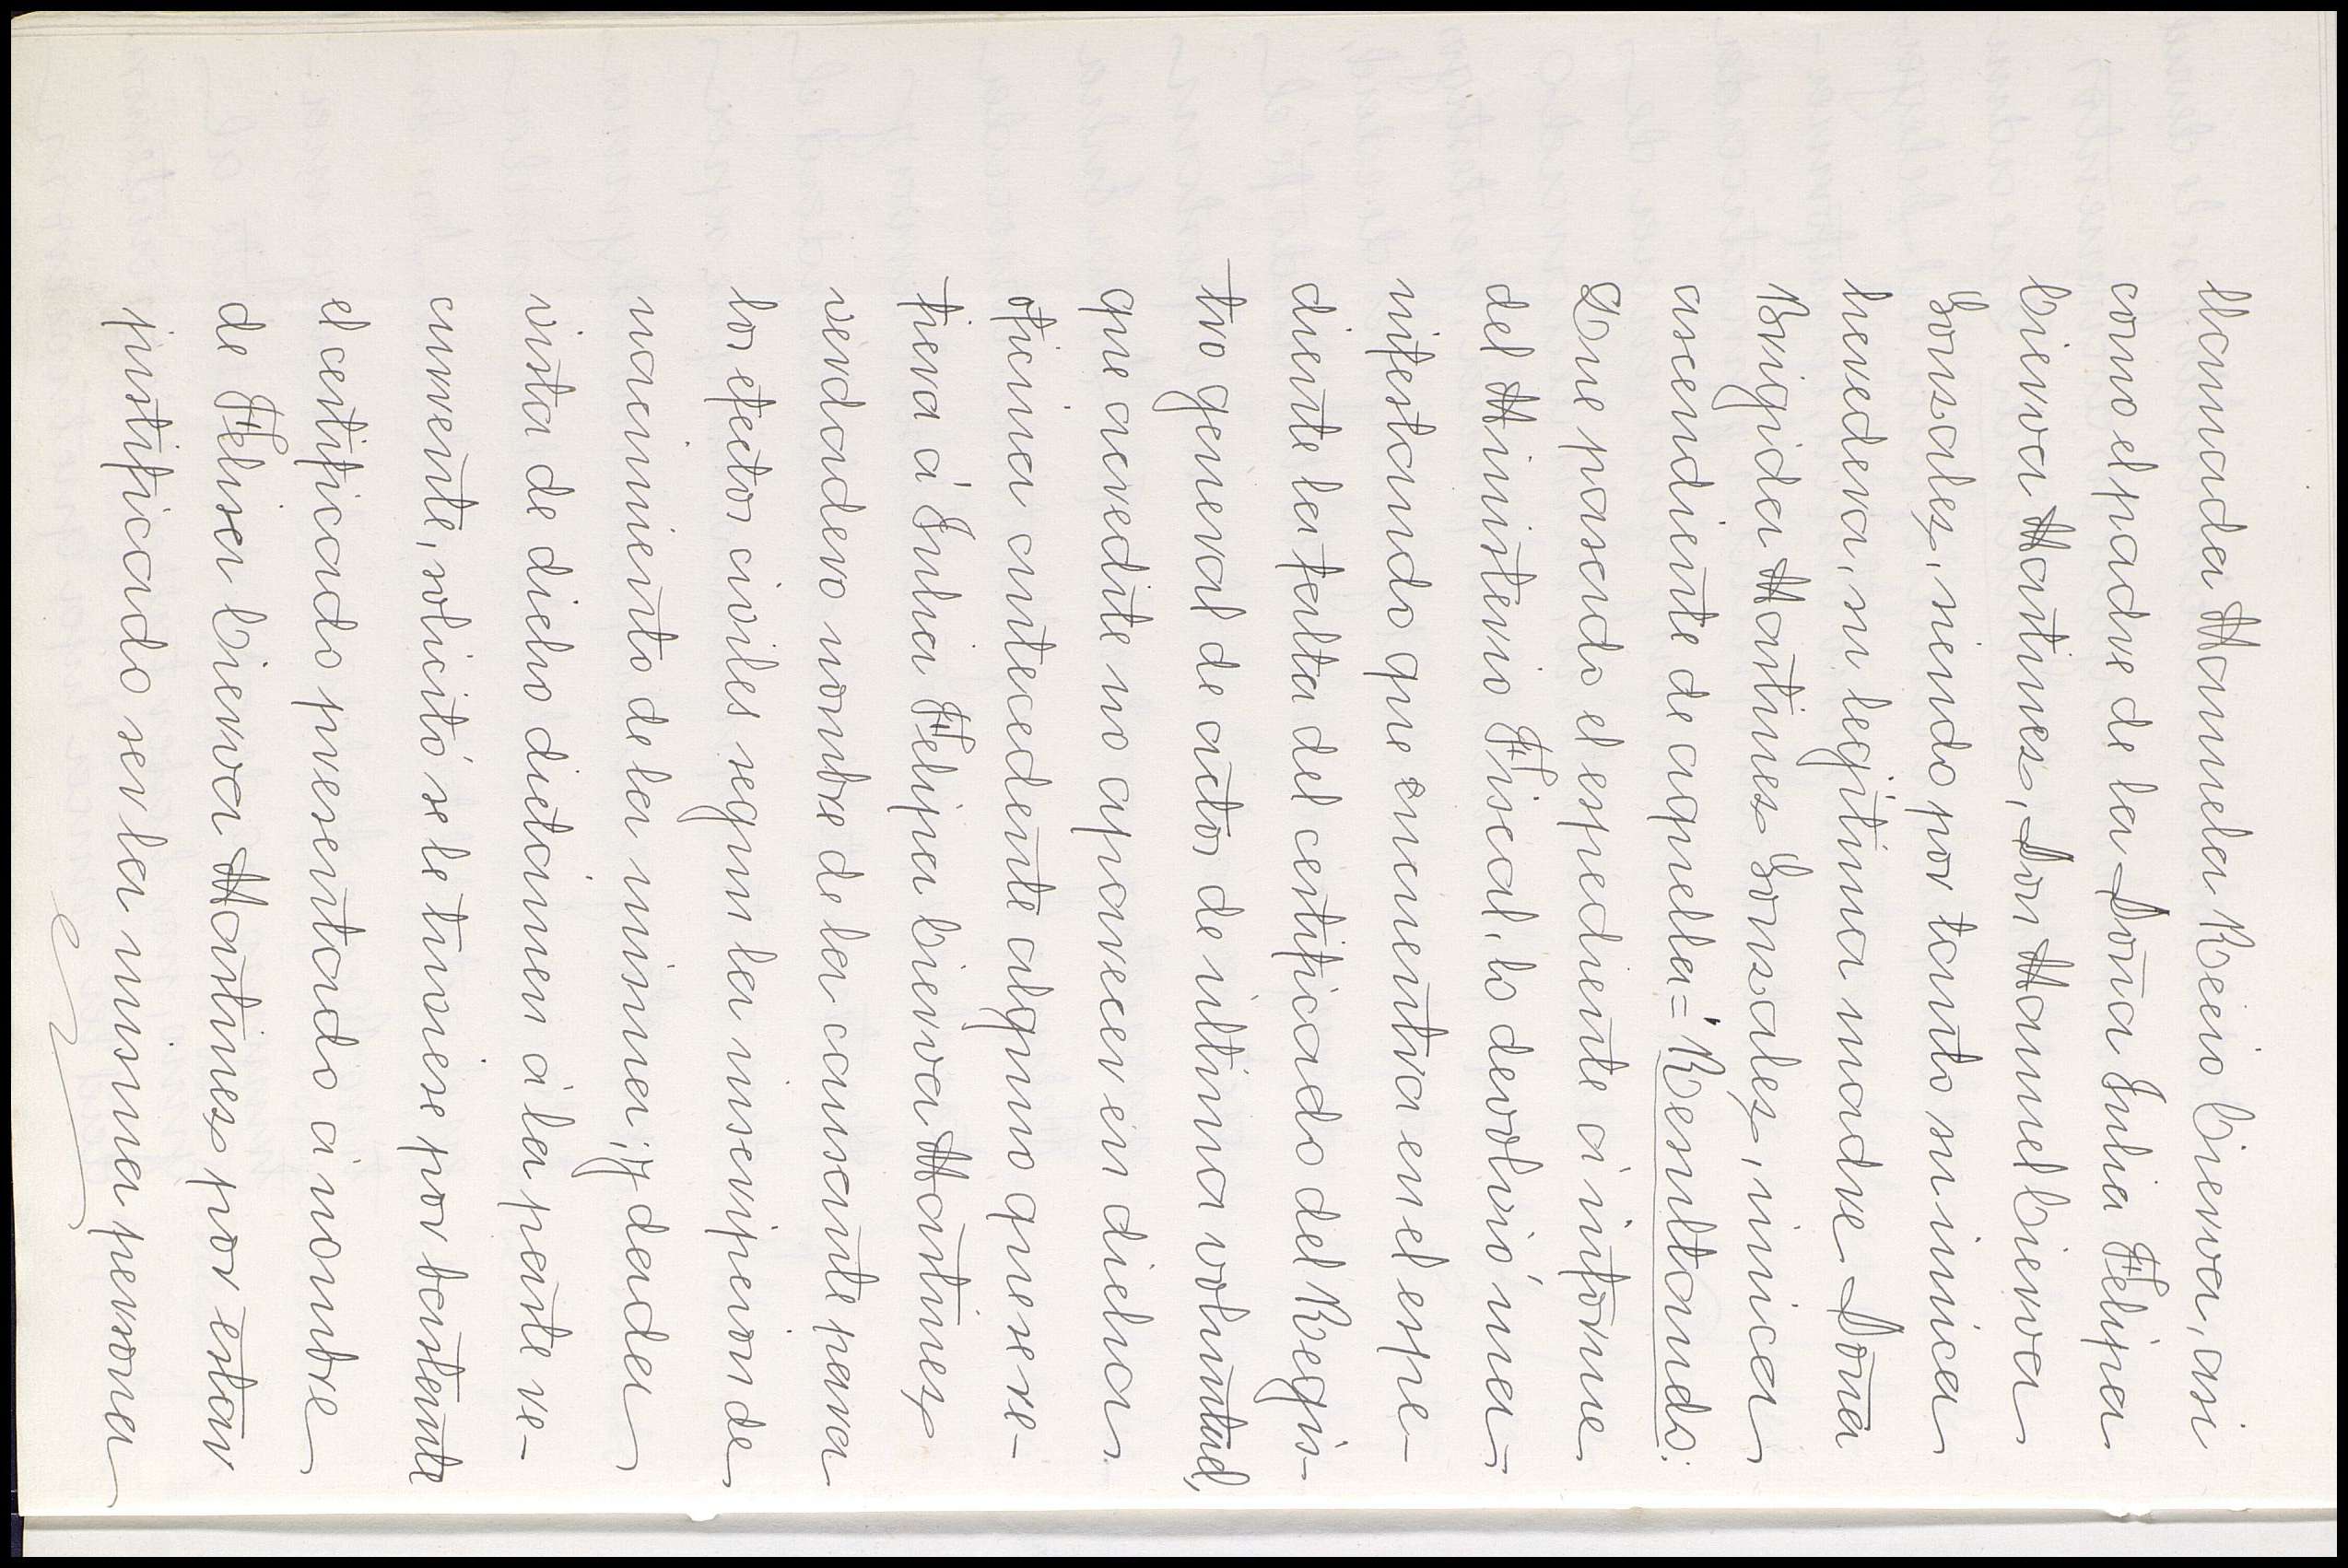 llamada Manuela Recio Cierva, asi
como el padre de la Doña Julia Felipa
Cierva Martines, Don Manuel Cierva
Gonsales, siendo por tanto su unica
heredera, su legitima madre Doña
Brigida Martines Gonsales, unica
ascendiente de aquella = Resultando:
Que pasado el espediente á informe
del Ministerio Fiscal, lo devolvió ma-
nifestando que encuentra en el espe-
diente la falta del certificado del Regis-
tro general de actos de ultima voluntad,
que acredite no aparecer en dicha
oficina antecedente alguno que se re-
fiera á Julia Felipa Cierva Martines,
verdadero nombre de la causante para
los efectos civiles segun la inscripcion de
nacimiento de la misma; y dada
vista de dicho dictámen á la parte re-
currente, solicitó se le tuviese por bastante
el certificado presentado á nombre
de Felisa Cierva Martines por estar
justificado ser la misma persona